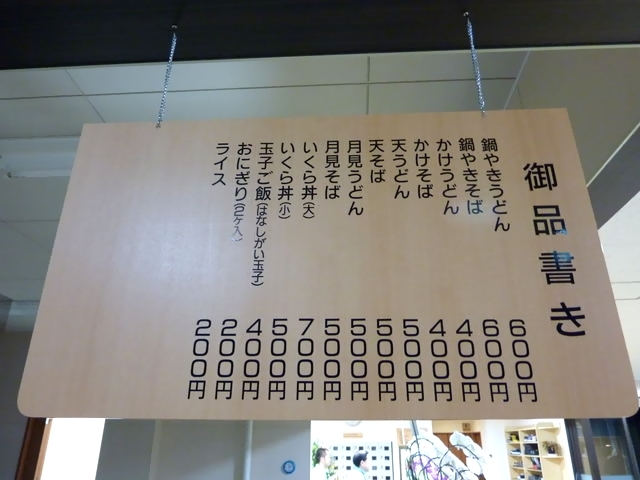 御品書き
鍋やきうどん 600円
鍋やきそば 600円
かけうどん 400円
かけそば 400円
天うどん 500円
天そば 500円
月見うどん 500円
月見そば 500円
いくら丼(大) 700円
いくら丼(小) 500円
玉子ご飯(はなしがい玉子) 400円
おにぎり(2ケ入) 200円
ライス 200円